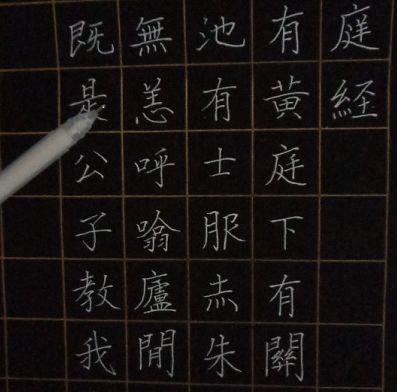 庭経
有黃庭下有關
池有士服赤朱
無恙呼噏廬間
既是公子教我